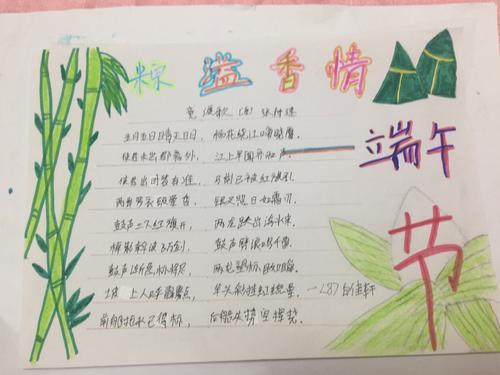 粽溢香情
竞渡歌(唐)张
五月五日日, 杨花绕江啼晓莺.
使君未出郡斋外, 江上早闻齐和声.
使君出时皆有准, 马前已被红旗引.
两岸罗衣破晕香, 银钗照日如霜刃.
鼓声三下红旗开, 两龙跃出浮水来.
棹影波万剑, 鼓声劈浪鸣千雷.
鼓声渐急标将近, 两龙望标目如瞬.
坡上人呼霹雳, 竿头彩挂虹霓晕.
前船抢水已得标, 后船失势空挥
端午
节